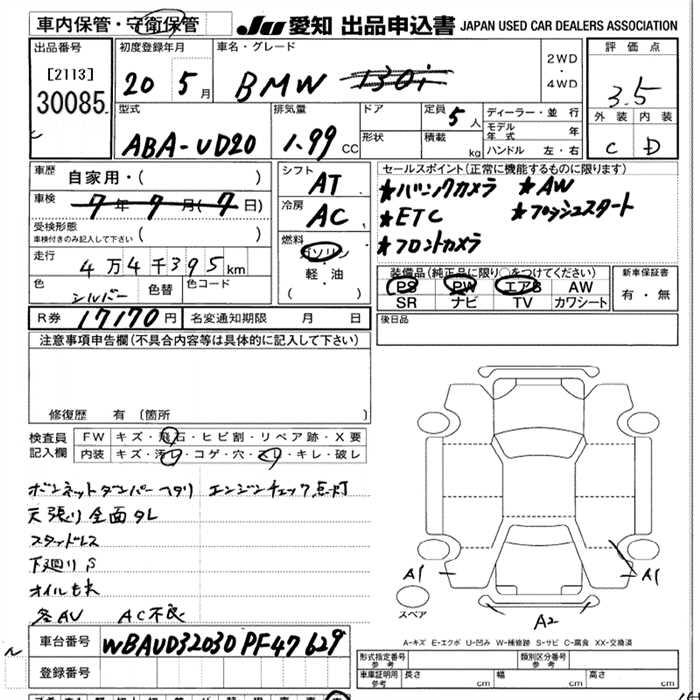 車内保管・守衛保管
JU 愛知 出品申込書 JAPAN USED CAR DEALERS ASSOCIATION
出品番号
[2113]
30085
初度登録年月
20 5月
車名・グレード
BMW 130i
2WD
・
4WD
評価点
3.5
外装 内装
C D
型式
ABA-UD20
排気量
1.99 CC
ドア
形状
定員 5人
積載 kg
ディーラー・並行
モデル年式 年
ハンドル 左・右
車歴 自家用・( )
車検 7年9月(7日)
受検形態
車検付きのみ記入して下さい ( )
走行
4万4千395km
色 シルバー 色替 色コード
シフト AT
冷房 AC
燃料
ガソリン
・
軽・油
( )
セールスポイント(正常に機能するものに限ります)
★パニングカメラ ★AW
★ETC ★プッシュスタート
★フロントカメラ
装備品(純正品に限り○をつけてください)
PS PW エアB AW
SR ナビ TV カワシート
新車保証書
有・無
R券 17170円 名変通知期限 月 日
後日品
注意事項申告欄(不具合内容等は具体的に記入して下さい)
修復歴 有 (箇所 )
検査員記入欄
FW キズ・飛石・ヒビ割・リペア跡・X要
内装 キズ・汚レ・コゲ・穴・スレ・キレ・破レ
ボンネットダンパーヘタリ エンジンチェック点灯
天張り全面タレ
スタッドレス
下廻りS
オイルもれ
各AU AC不良
A1 A1
スペア
A2
A-キズ E-エクボ U-凹み W-補修跡 S-サビ C-腐食 XX-交換済
車台番号 WBAUD32030PF47629
登録番号
形式指定番号 参考 類別区分番号 参考
車庫証明用 参考 長さ cm 幅 cm 高さ cm